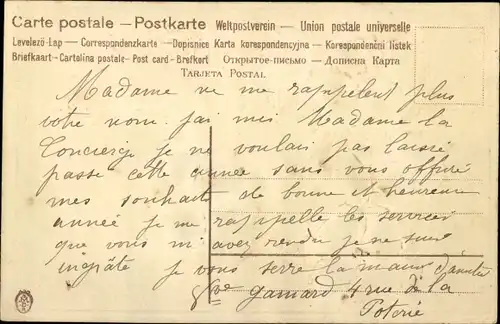 Carte postale — Postkarte Weltpostverein — Union postale universelle
Levelező-Lap — Correspondenzkarte — Dopisnice Karta korespondencyjna — Korespondenční lístek
Briefkaart - Cartolina postale - Post card - Brefkort Открытое-письмо — Дописна Карта
TARJETA POSTAL
Madame ne me rappelent plus
votre nom j'ai mis Madame la
Concierge je ne voulais pas laissé
passe cette année sans vous offrire
mes souhaits de bonne et heureuse
année je me rappelle les services
que vous m'avez rendu je ne suis
ingrâte je vous serre la main d'amitié
gamard 4 rue de la
Poterie